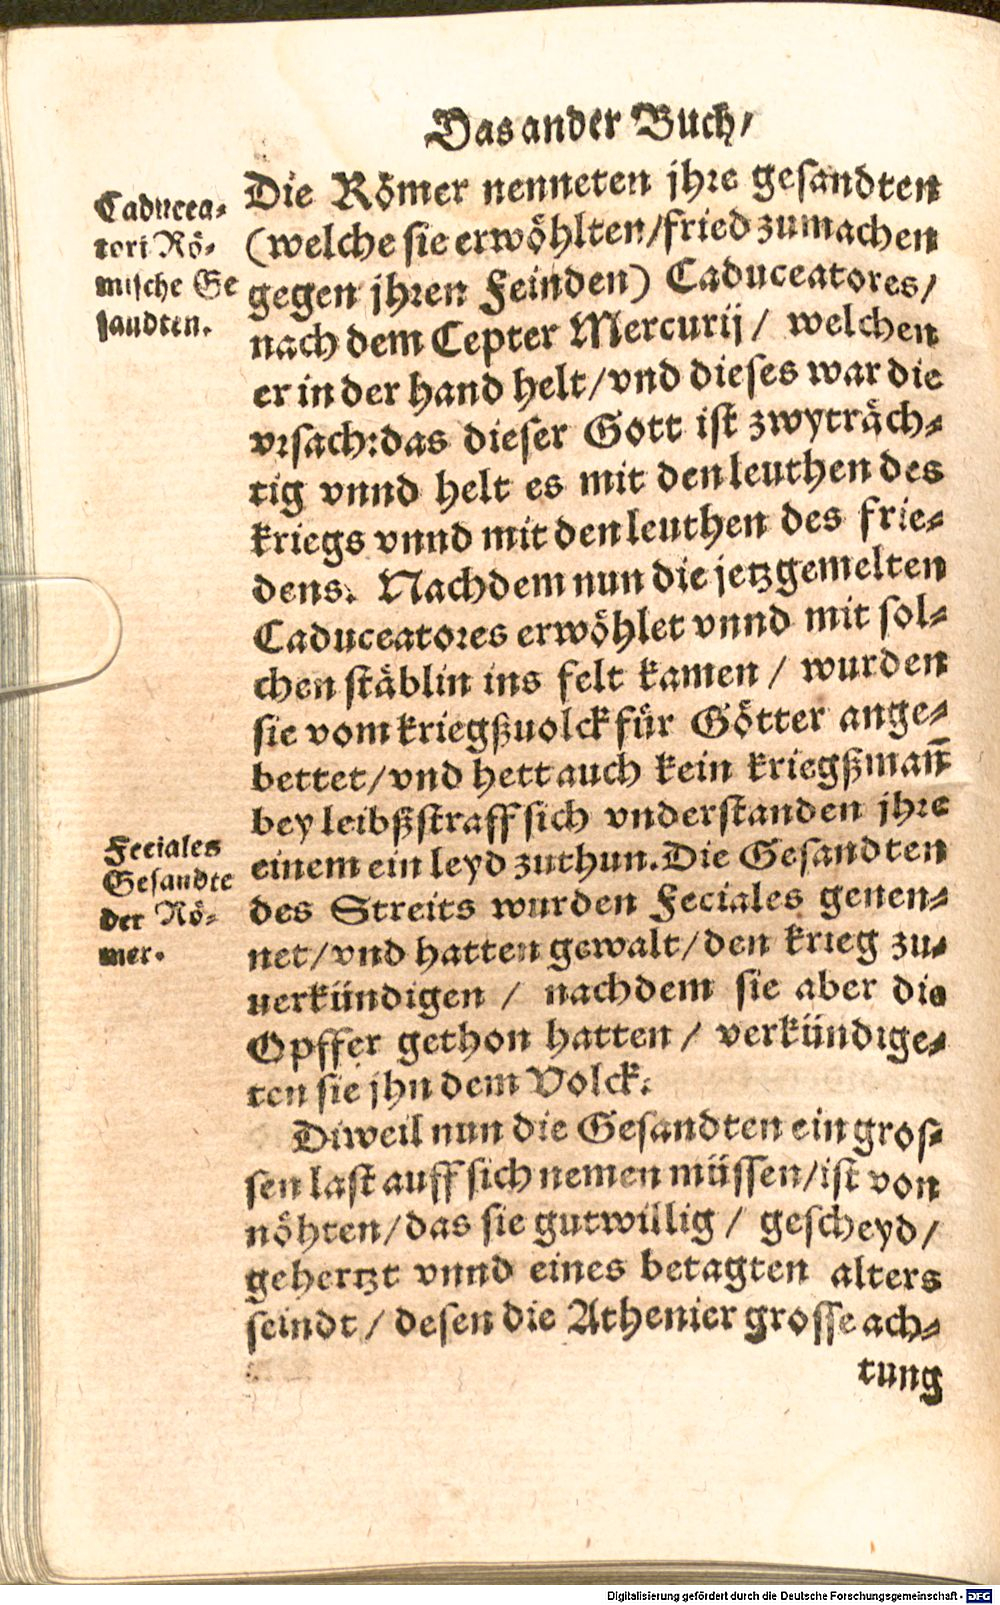 Das ander Buch/
Caducea-
tori Rö-
mische Ge
sandten.
Die Römer nenneten jhre gesandten
(welche sie erwöhlten/fried zumachen
gegen jhren Feinden) Caduceatores/
nach dem Cepter Mercurij/ welchen
er in der hand helt/vnd dieses war die
vrsach:das dieser Gott ist zwyträch-
tig vnnd helt es mit den leuthen des
kriegs vnnd mit den leuthen des frie-
dens. Nachdem nun die jetzgemelten
Caduceatores erwöhlet vnnd mit sol-
chen stäblin ins felt kamen / wurden
sie vom kriegßuolck für Götter ange-
bettet/vnd hett auch kein kriegßmañ
bey leibßstraff sich vnderstanden jhre
einem ein leyd zuthun.Die Gesandten
des Streits wurden Feciales genen-
net/vnd hatten gewalt/den krieg zu-
uerkündigen / nachdem sie aber die
Opffer gethon hatten / verkündige-
ten sie jhn dem Volck.
Feciales
Gesandte
der Rö-
mer.
Diweil nun die Gesandten ein gros-
sen last auff sich nemen müssen/ist von
nöhten/das sie gutwillig / gescheyd/
gehertzt vnnd eines betagten alters
seindt / desen die Athenier grosse ach-
tung
Digitalisierung gefördert durch die Deutsche Forschungsgemeinschaft - DFG